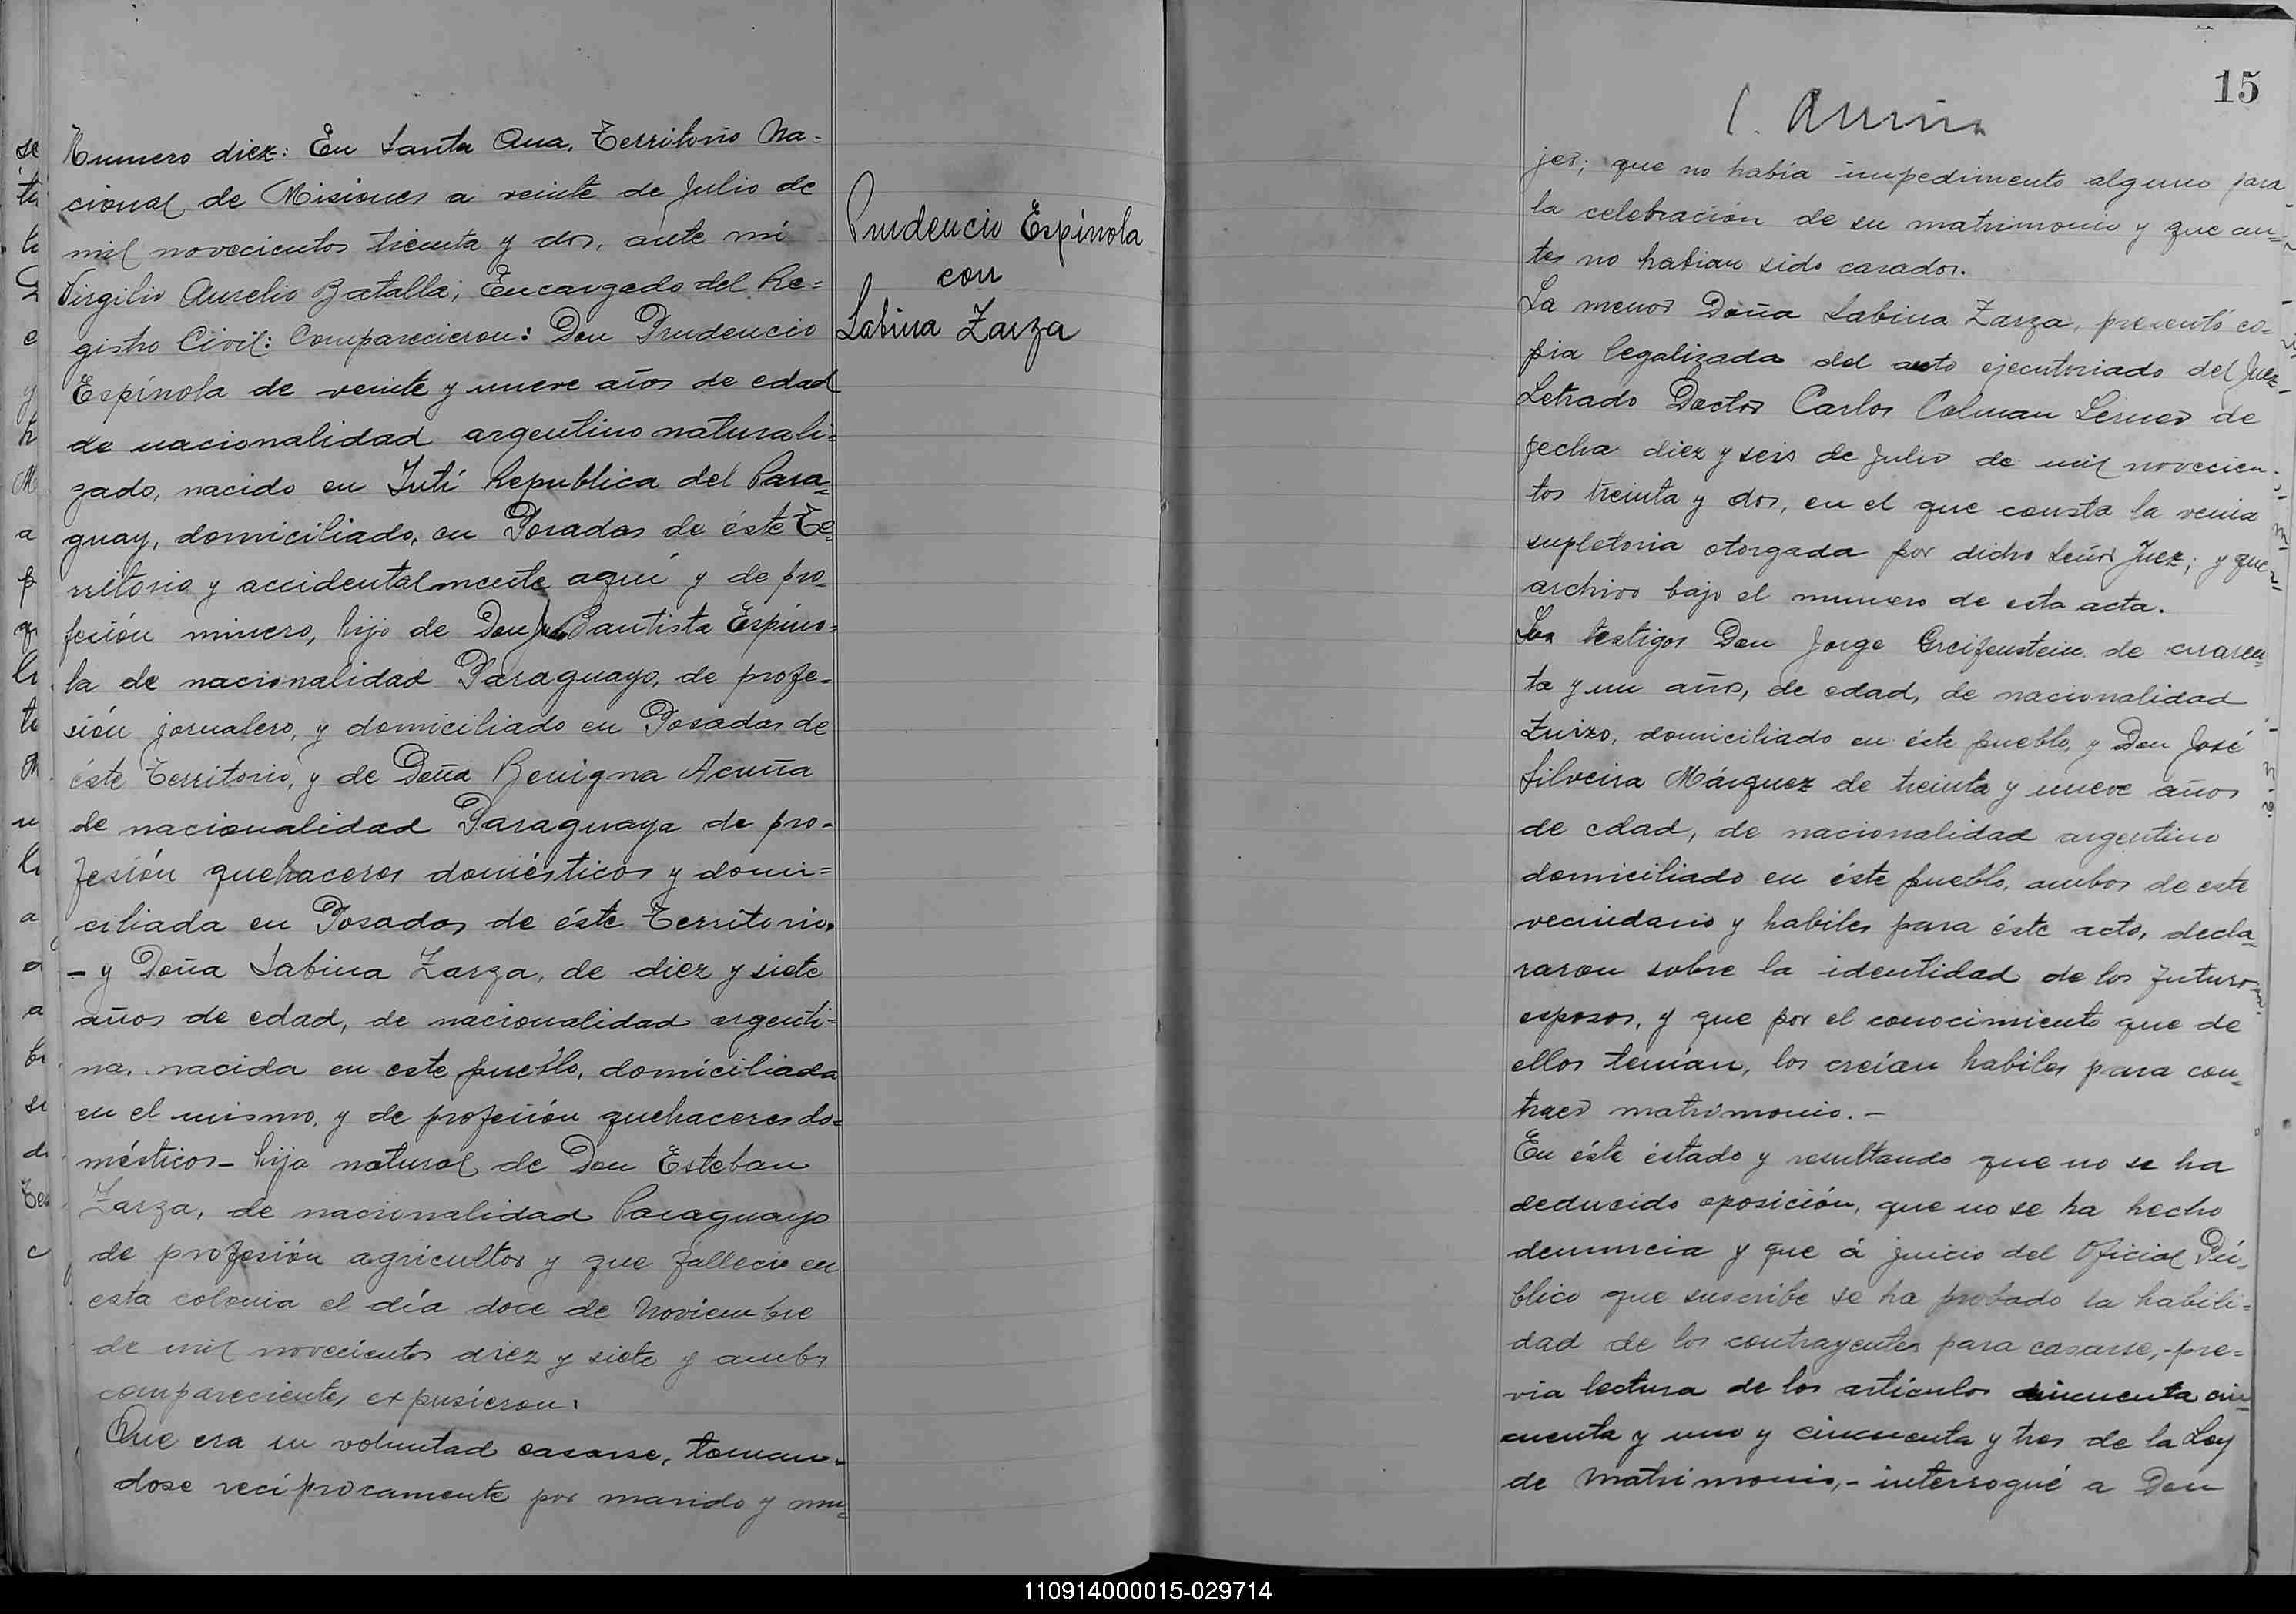 Numero diez: En Santa Ana, Territorio Na=
cional de Misiones a veinte de Julio de
mil novecientos treinta y dos, ante mí
Virgilio Aurelio Batalla, Encargado del Re=
gistro Civil: Comparecieron: Don Prudencio
Espínola de veinte y nueve años de edad
de nacionalidad argentino naturali=
zado, nacido en Yutí Republica del Para=
guay, domiciliado, en Posadas de éste Te=
rritorio y accidentalmente aquí y de pro=
fesión minero, hijo de Don Juan Bautista Espíno=
la de nacionalidad Paraguayo, de profe-
sión jornalero, y domiciliado en Posadas de
éste Territorio, y de Doña Benigna Acuña
de nacionalidad Paraguaya de pro-
fesión quehaceres domésticos y domi=
ciliada en Posadas de éste Territorio.
- y Doña Sabina Zarza, de diez y siete
años de edad, de nacionalidad argenti=
na, nacida en este pueblo, domiciliada
en el mismo, y de profesión quehaceres do=
mésticos - hija natural de Don Esteban
Zarza, de nacionalidad Paraguayo
de profesión agricultor y que fallecio en
esta colonia el día doce de Noviembre
de mil novecientos diez y siete y ambos
comparecientes expusieron:
Que era su voluntad casarse, toman-
dose recíprocamente por marido y mu=
Prudencio Espínola
con
Sabina Zarza
15
jer; que no había impedimento alguno para
la celebración de su matrimonio y que an=
tes no habian sido casados.
La menor Doña Sabina Zarza, presentó co=
pia legalizada del auto ejecutoriado del Juez
Letrado Doctor Carlos Colman Lerner de
fecha diez y seis de Julio de mil novecien-
tos treinta y dos, en el que consta la venia
supletoria otorgada por dicho Señor Juez; y que
archivo bajo el numero de esta acta.
Los testigos Don Jorge Greifenstein de cuaren=
ta y un años, de edad, de nacionalidad
Zuizo, domiciliado en éste pueblo, y Don José
Silveira Márquez de treinta y nueve años
de edad, de nacionalidad argentino
domiciliado en éste pueblo, ambos de este
vecindario y habiles para éste acto, decla=
raron sobre la identidad de los futuros
esposos, y que por el conocimiento que de
ellos tenían, los creían habiles para con=
traer matrimonio. -
En éste éstado y resultando que no se ha
deducido oposición, que no se ha hecho
denuncia y que á juicio del Oficial Pú=
blico que suscribe se ha probado la habili=
dad de los contrayentes para casarse, - pre=
via lectura de los artículos cincuenta cin=
cuenta y uno y cincuenta y tres de la Ley
de Matrimonio, - interrogué a Don
110914000015-029714